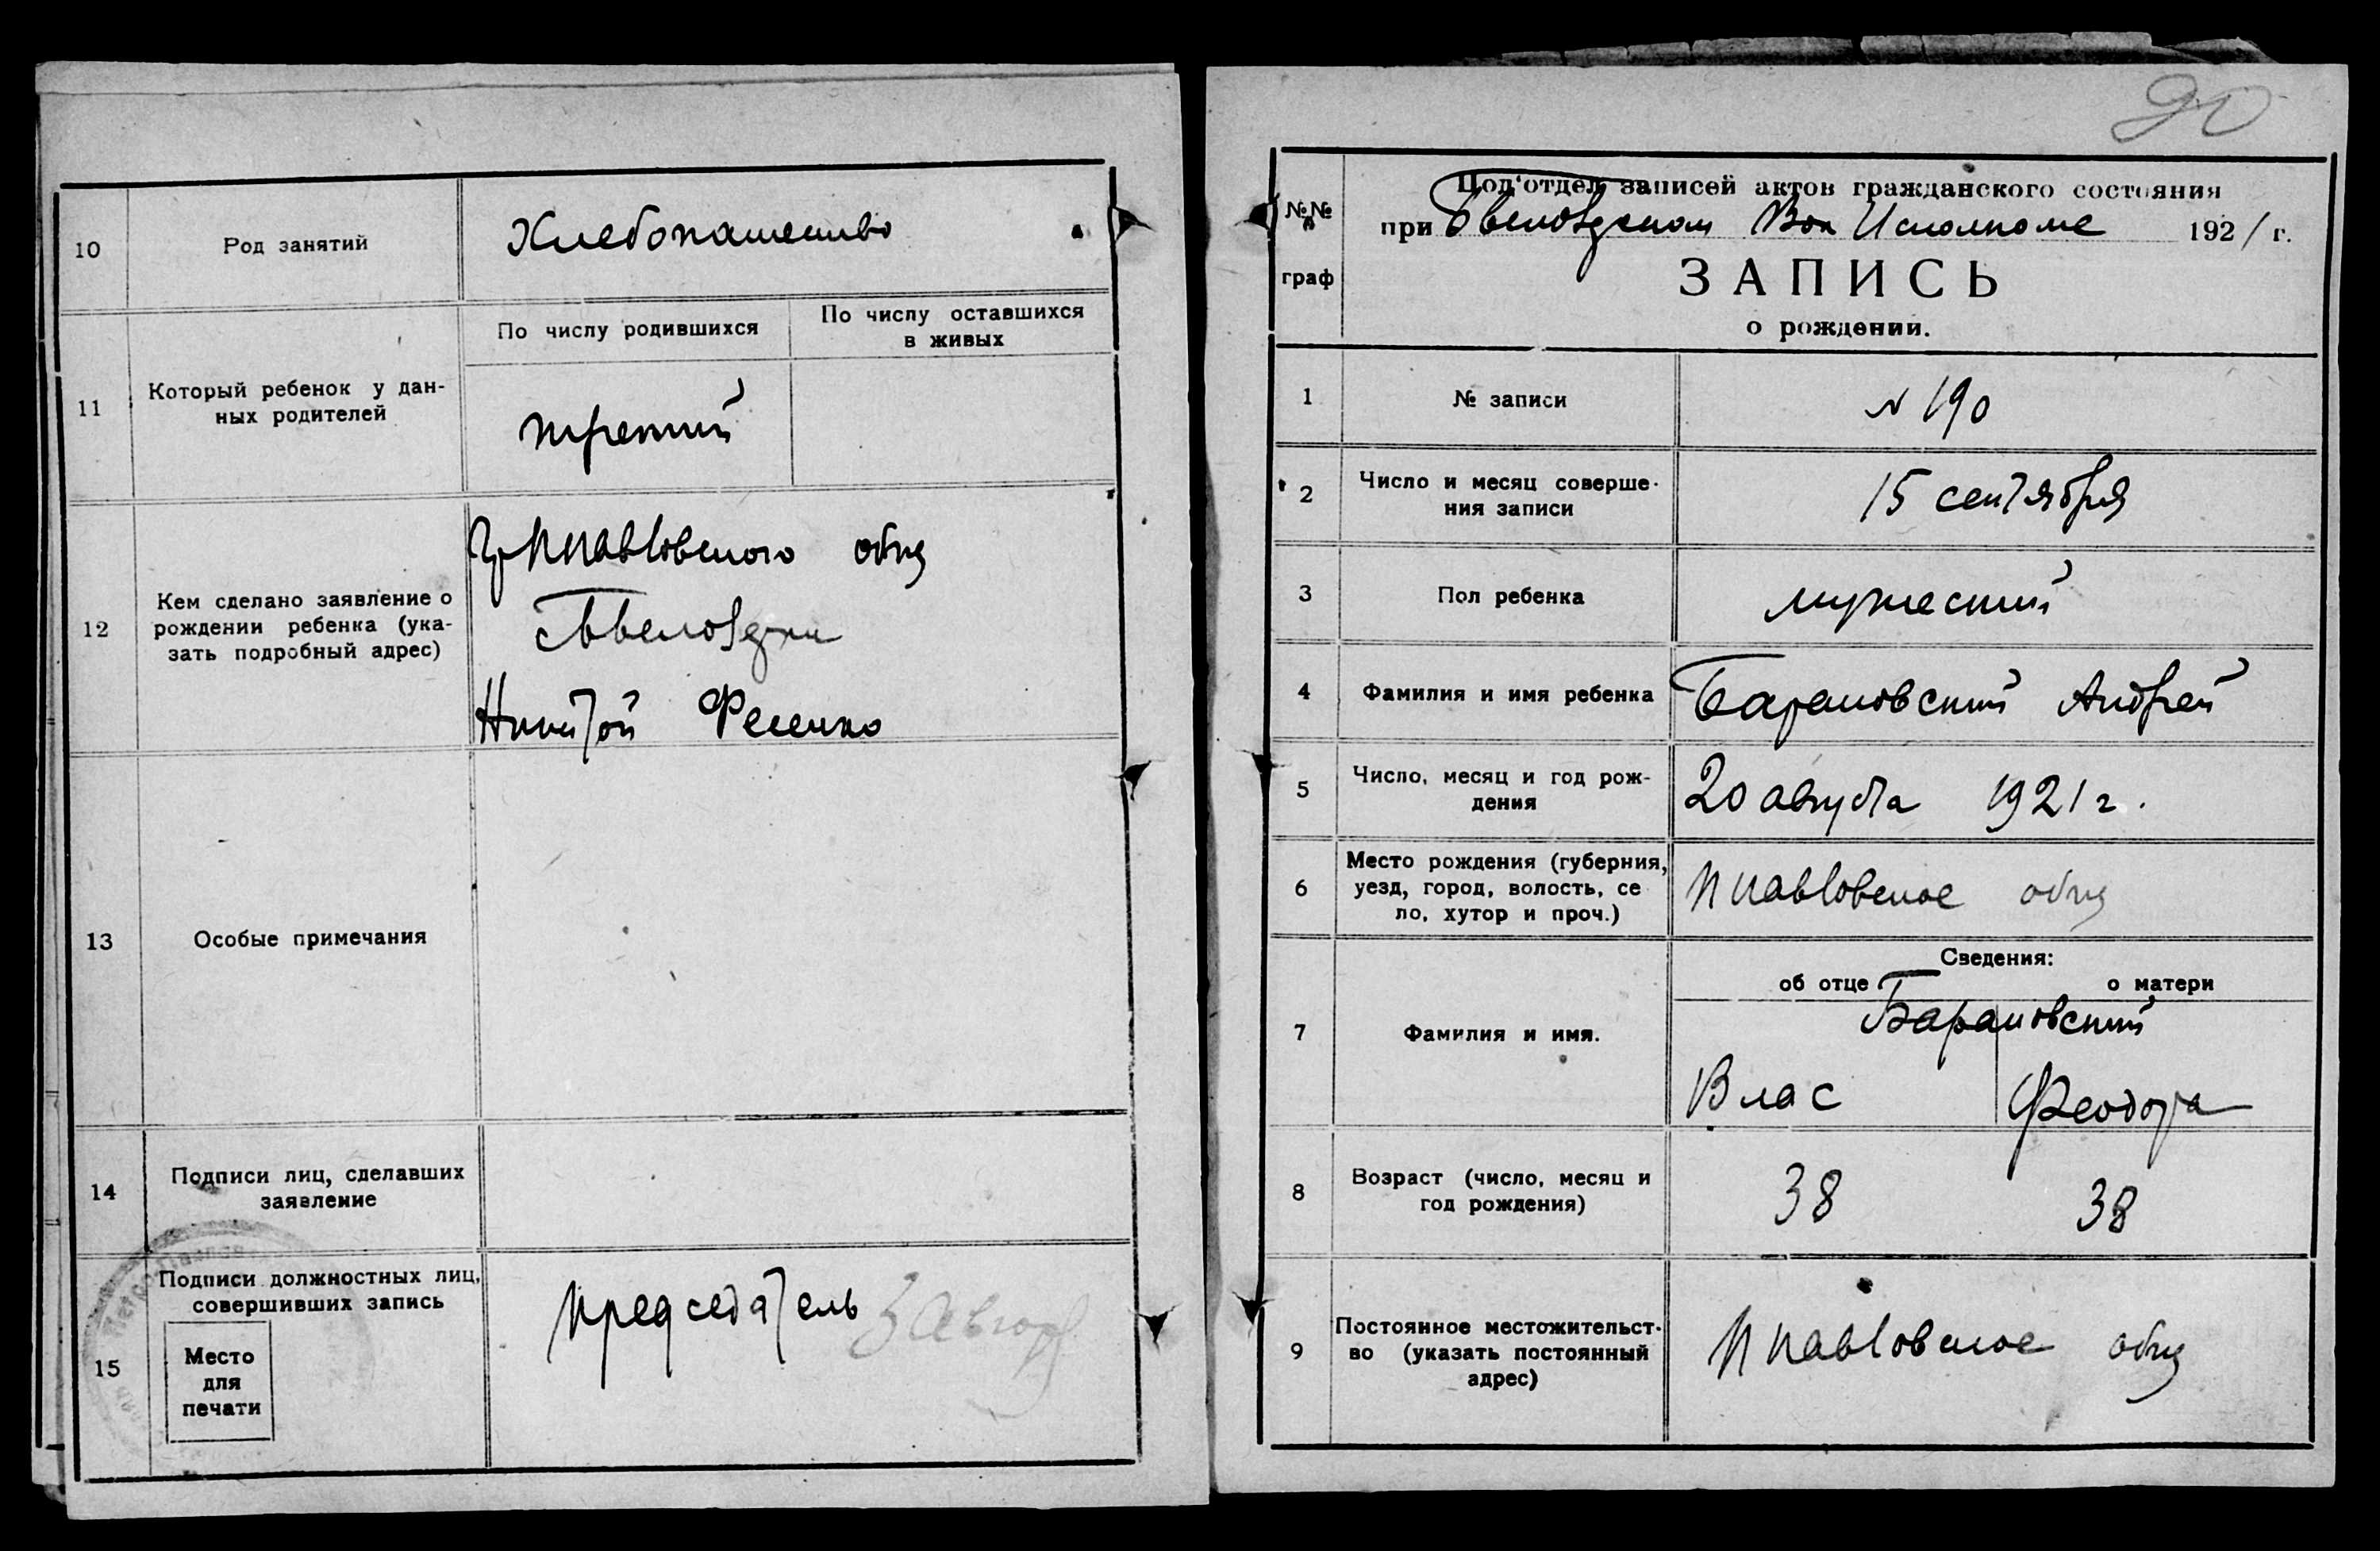 10
Род занятий
Хлебопашество
11
Который ребенок у дан-
ных родителей
По числу родившихся
По числу оставшихся
в живых
третий
12
Кем сделано заявление о
рождении ребенка (ука-
зать подробный адрес)
общ
Никитой Фесенко
13
Особые примечания
14
Подписи лиц, сделавших
заявление
15
Подписи должностных лиц,
совершивших запись
Место
для
печати
председатель
90
№№
граф
Под'отдел записей актов гражданского состояния
при Вол Исполкоме 1921 г.
ЗАПИСЬ
о рождении.
1
№ записи
N 190
2
Число и месяц соверше-
ния записи
15 сентября
3
Пол ребенка
мужеский
4
Фамилия и имя ребенка
Барановский Андрей
5
Число, месяц и год рож-
дения
20 августа 1921 г.
6
Место рождения (губерния,
уезд, город, волость, се
ло, хутор и проч.)
общ
7
Фамилия и имя.
Сведения:
об отце
о матери
Барановский
Влас
Феодора
8
Возраст (число, месяц и
год рождения)
38
38
9
Постоянное местожительст-
во (указать постоянный
адрес)
общ